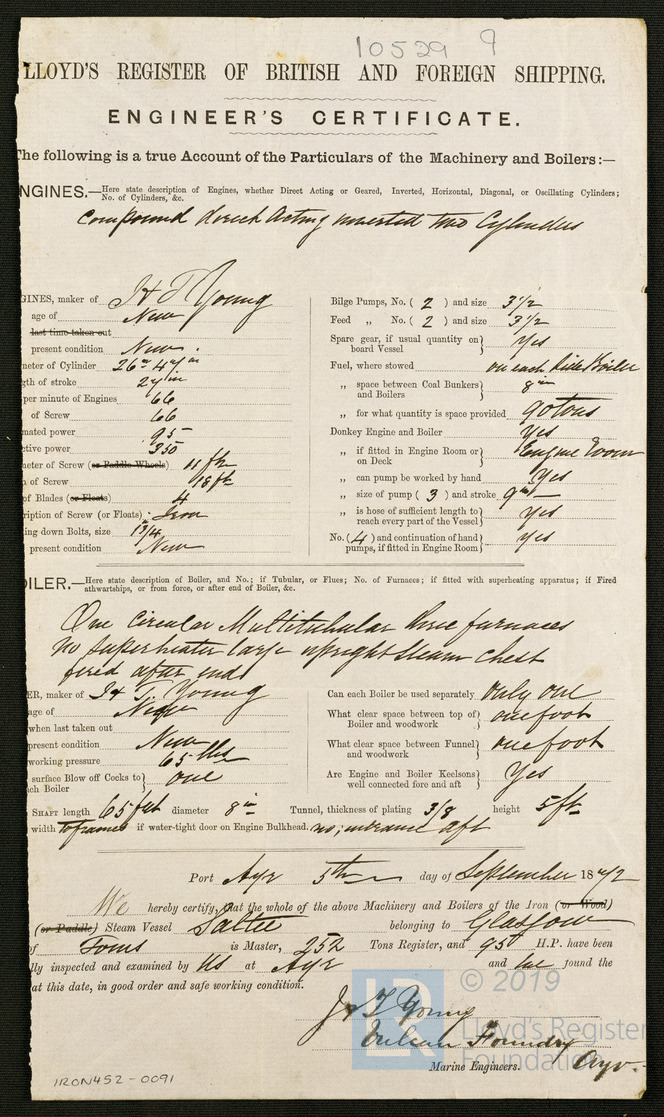 10529 9
LLOYD'S REGISTER OF BRITISH AND FOREIGN SHIPPING.
ENGINEER'S CERTIFICATE.
The following is a true Account of the Particulars of the Machinery and Boilers:—
NGINES.—Here state description of Engines, whether Direct Acting or Geared, Inverted, Horizontal, Diagonal, or Oscillating Cylinders;
No. of Cylinders, &c.
Compound direct Acting inverted two Cylinders
GINES, maker of J & T Young
age of New
last time taken out
present condition New
neter of Cylinder 26in 47in
gth of stroke 27in
per minute of Engines 66
of Screw 66
nated power 95
ctive power 350
neter of Screw (or Paddle Wheels) 11 ft
h of Screw 18 ft
of Blades (or Floats) 4
ription of Screw (or Floats) Iron
ing down Bolts, size 1 3/4
present condition New
Bilge Pumps, No. ( 2 ) and size 3 1/2
Feed „ No. ( 2 ) and size 3 1/2
Spare gear, if usual quantity on board Vessel } Yes
Fuel, where stowed on each side Boiler
„ space between Coal Bunkers and Boilers } 8 in
„ for what quantity is space provided 90 tons
Donkey Engine and Boiler Yes
„ if fitted in Engine Room or on Deck } Engine Room
„ can pump be worked by hand Yes
„ size of pump ( 3 ) and stroke 9 in
„ is hose of sufficient length to reach every part of the Vessel } Yes
No. ( 4 ) and continuation of hand pumps, if fitted in Engine Room } Yes
OILER.—Here state description of Boiler, and No.; if Tubular, or Flues; No. of Furnaces; if fitted with superheating apparatus; if Fired
athwartships, or from force, or after end of Boiler, &c.
One Circular Multitubular three furnaces
No Superheater large upright Steam Chest
fired after end
ER, maker of J & T Young
age of New
when last taken out
present condition New
working pressure 65 lbs
surface Blow off Cocks to ch Boiler } one
Can each Boiler be used separately only one
What clear space between top of Boiler and woodwork } one foot
What clear space between Funnel and woodwork } one foot
Are Engine and Boiler Keelsons well connected fore and aft } Yes
SHAFT length 65 feet diameter 8 in Tunnel, thickness of plating 3/8 height 5 ft
width to frames if water-tight door on Engine Bulkhead. no; entrance aft
Port Ayr 5th day of September 1872
We hereby certify, that the whole of the above Machinery and Boilers of the Iron (or Wood)
(or Paddle) Steam Vessel Saltee belonging to Glasgow
of is Master, 252 Tons Register, and 95 H.P. have been
lly inspected and examined by us at Ayr and we found the
at this date, in good order and safe working condition.
J & T Young
Vulcan Foundry
Ayr.
Marine Engineers.
IRON452-0091
LR © 2019
Lloyd's Register
Foundation